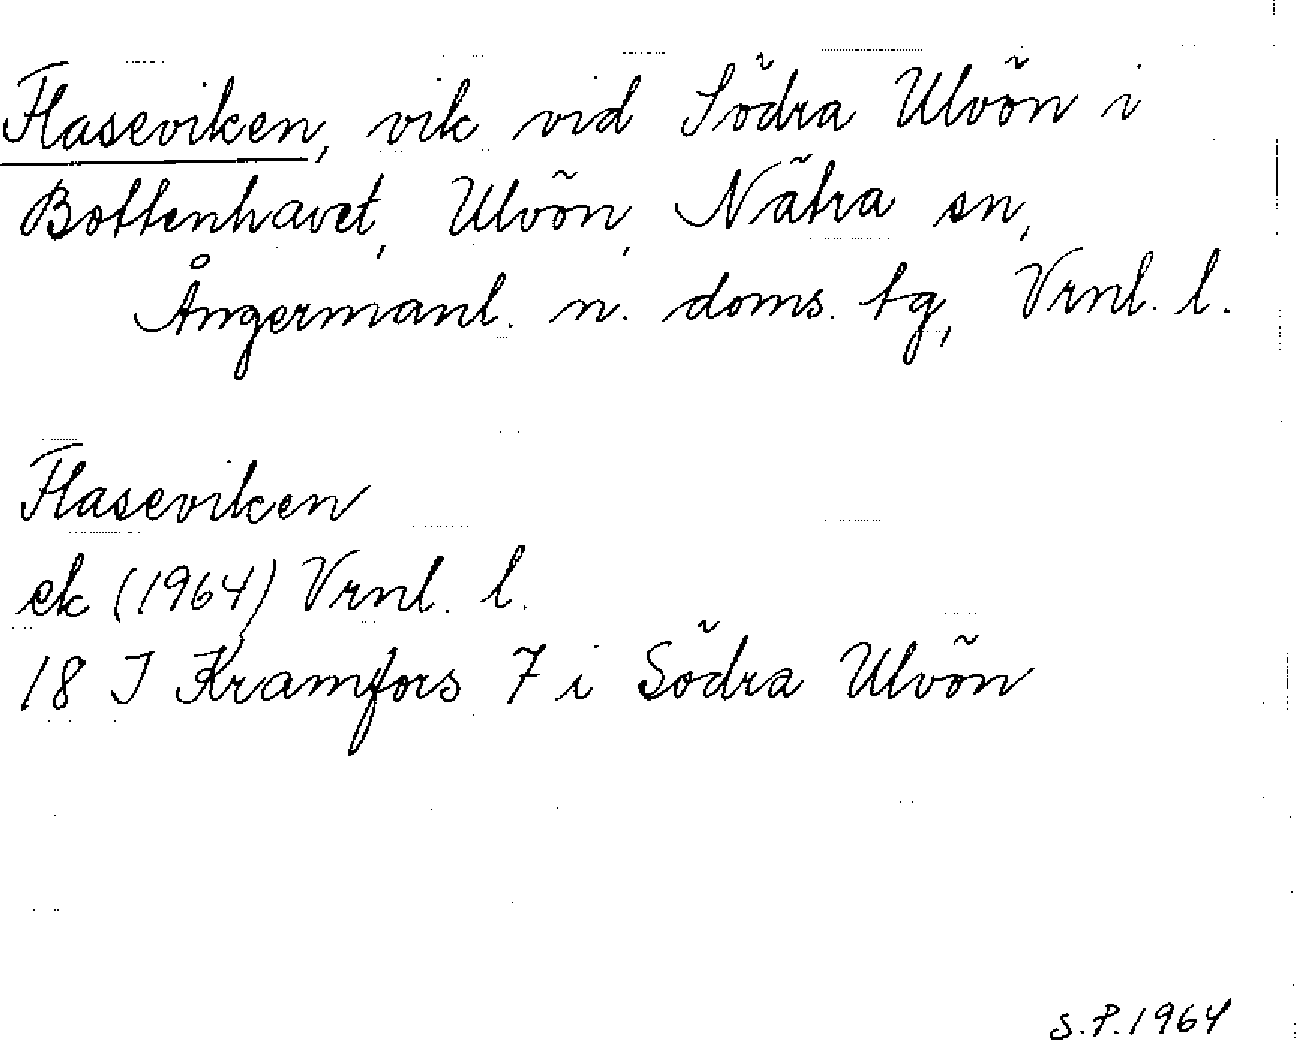 Flaseviken, vik vid Södra Ulvön i
Bottenhavet, Ulvön, Nätra sn,
Ångermanl. n. doms. tg, Vrnl. l.
Flaseviken
ek (1964) Vrnl. l.
18 I Kramfors 7 i Södra Ulvön
S.P. 1964